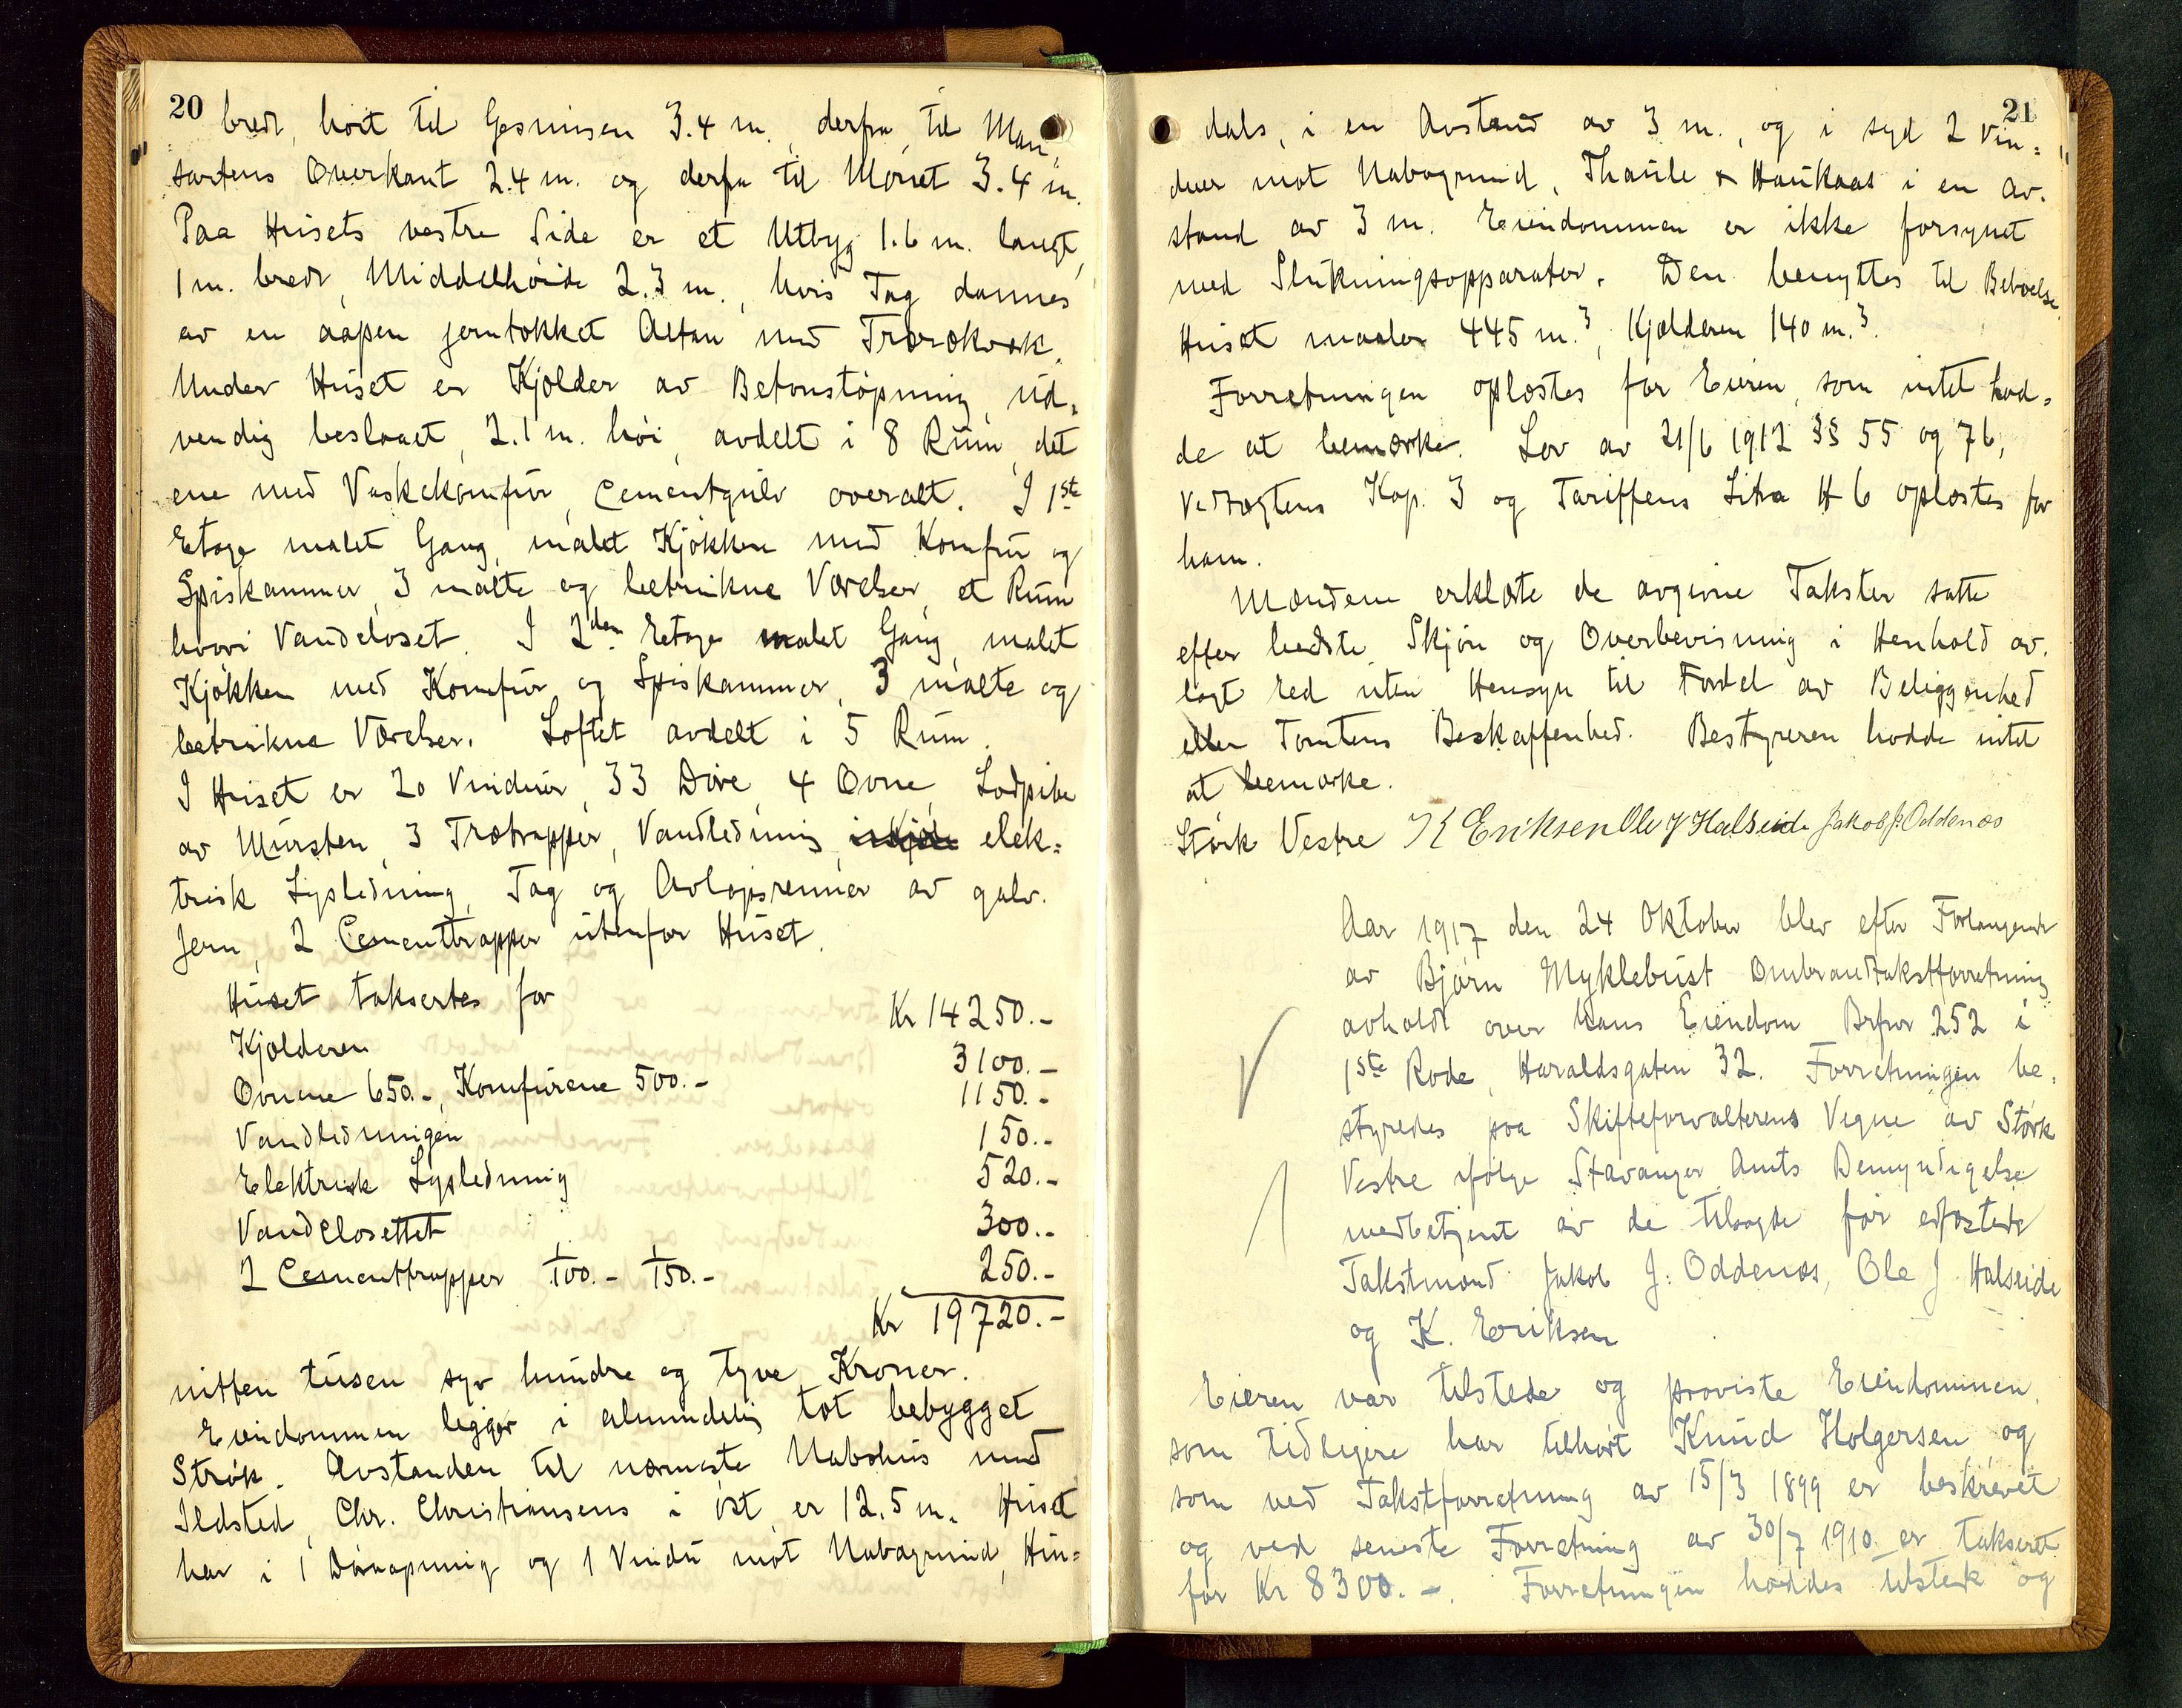 20
bredt, höit til Gesmisen 3.4 m., derfra til Man,
sartens Overkant 2.4 m. og derfra til Mönet 3.4 m.
Paa Husets vestre Side er et Utbyg 1.6 m. langt,
1 m. bredt, Middelhöide 2.3 m., hvis Tag dannes
av en aapen jerntækket Altan med Trærækværk.
Under Huset er Kjælder av Betonstöpning, ud,
vendig beslaaet, 2.1 m. höi, avdelt i 8 Rum, det
ene med Vaskekomfur, Cementgulv overalt. I 1ste
Etage malet Gang, malet Kjökken med Komfur og
Spiskammer, 3 malte og betrukne Værelser, et Rum
hvori Vandcloset. I 2den Etage malet Gang, malet
Kjökken med Komfur og Spiskammer, 3 malte og
betrukne Værelser. Loftet avdelt i 5 Rum.
I Huset er 20 Vinduer, 33 Döre, 4 Ovne, Lodpibe
av Mursten, 3 Trætrapper, Vandledning, elek=
trisk Lysledning, Tag og Avlöpsrenner av galv.
Jern, 2 Cementtrapper utenfor Huset.
Huset taksertes for Kr 14250.-
Kjælderen 3100.-
Ovnene 650.-, Komfurene 500.- 1150.-
Vandledningen 150.-
Elektrisk Lysledning 520.-
Vandclosettet 300.-
2 Cementtrapper 1/100.- 1/150.- 250.-
Kr 19720.-
nitten tusen syv hundre og tyve Kroner.
Eiendommen ligger i almindelig tæt bebygget
Strök. Avstanden til nærmeste Nabohus med
Ildsted, Chr. Christiansens i öst er 12.5 m. Huset
har i 1 Döraapning og 1 Vindu mot Nabogrund, Hin=
21
dals, i en Avstand av 3 m., og i syd 2 Vin=
duer mot Nabogrund, Thaule & Haukaas i en av.
stand av 3 m. Eiendommen er ikke forsynet
med Slukningsapparater. Den benyttes til Beboelse.
Huset maaler 445 m.3, Kjælderen 140 m.3.
Forretningen oplæstes for Eieren, som intet had=
de at bemærke. Lov av 21/6 1912 §§ 55 og 76,
Vedtægtens Kap. 3 og Tariffens Litra H 6 oplæstes for
ham.
Mændene erklærte de avgivne Takster satte
efter bedste Skjön og Overbevisning i Henhold av.
lagt Ed uten Hensyn til Fordel av Beliggenhed
eller Tomtens Beskaffenhed. Bestyreren hadde intet
at bemærke.
Störk Vestre K Eriksen Ole J Halseide Jakob J. Oddenæs
Aar 1917 den 24 Oktober blev efter Forlangende
av Björn Myklebust Ombrandtakstforretning
avholdt over hans Eiendom Brfnr 252 i
1ste Rode, Haraldsgaten 32. Forretningen be,
styredes paa Skifteforvalterens Vegne av Störk
Vestre ifölge Stavanger Amts Bemyndigelse
medbetjent av de tilsagte för edfæstede
Takstmænd Jakob J. Oddenæs, Ole J Halseide
og K. Eriksen
Eieren var tilstede og paaviste Eiendommen,
som tidligere har tilhört Knud Holgersen, og
som ved Takstforretning av 15/3 1899 er beskrevet
og ved seneste Forretning av 30/7 1910 er taksert
for Kr 8300.-. Forretningen holdtes tilstede og